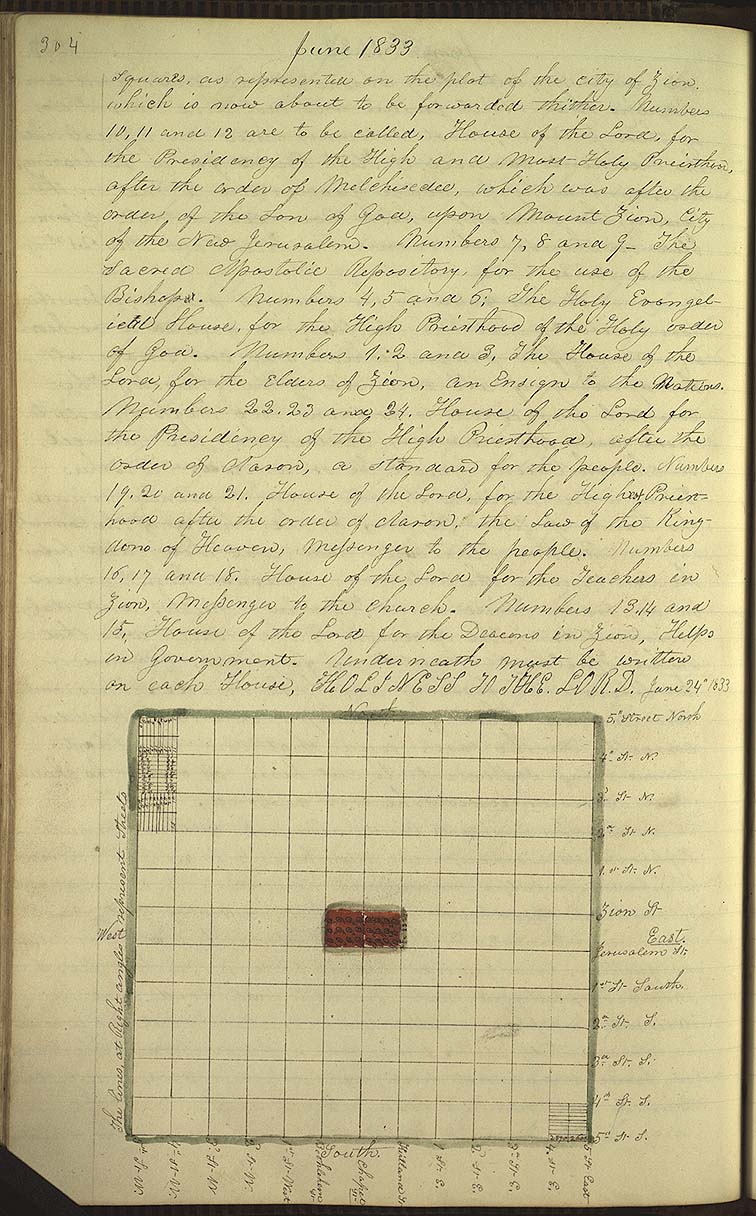 304
June 1833
squares, as represented on the plot of the city of Zion.
which is now about to be forwarded thither. Numbers
10, 11 and 12 are to be called, House of the Lord, for
the Presidency of the High and Most Holy Priesthood,
after the order of Melchisedec, which was after the
order of the Son of God, upon Mount Zion, City
of the New Jerusalem. Numbers 7, 8 and 9 - The
Sacred Apostolic Repository, for the use of the
Bishop. Numbers 4, 5 and 6; The Holy Evangel-
ical House, for the High Priesthood of the Holy order
of God. Numbers 1. 2 and 3, The House of the
Lord, for the Elders of Zion, an Ensign to the Nations.
Numbers 22. 23 and 24. House of the Lord for
the Presidency of the High Priesthood, after the
order of Aaron, a standard for the people. Numbers
19. 20 and 21. House of the Lord, for the High Priest-
hood after the order of Aaron, the Law of the King-
dom of Heaven, Messenger to the people. Numbers
16, 17 and 18. House of the Lord for the Teachers in
Zion, Messenger to the Church. Numbers 13. 14 and
15, House of the Lord for the Deacons in Zion, Helps
in Government. Underneath must be written
on each House, HOLINESS TO THE LORD. June 24th 1833
North
5th Street North
4th St. N.
3d St. N.
2nd St. N.
1st St. N.
Zion St
West
East.
Jerusalem St.
1st St South.
2nd St. S.
3d St. S.
4th St. S.
5th St S.
The lines, at Right angles, represent Streets
South
5th St. W.
4th St. W.
3d St. W
2d St. W.
1st St West
Bethlehem St
Chapel St
Kirtland St
1 St. E.
2d St. E.
3d St E.
4 St. E
5 St East